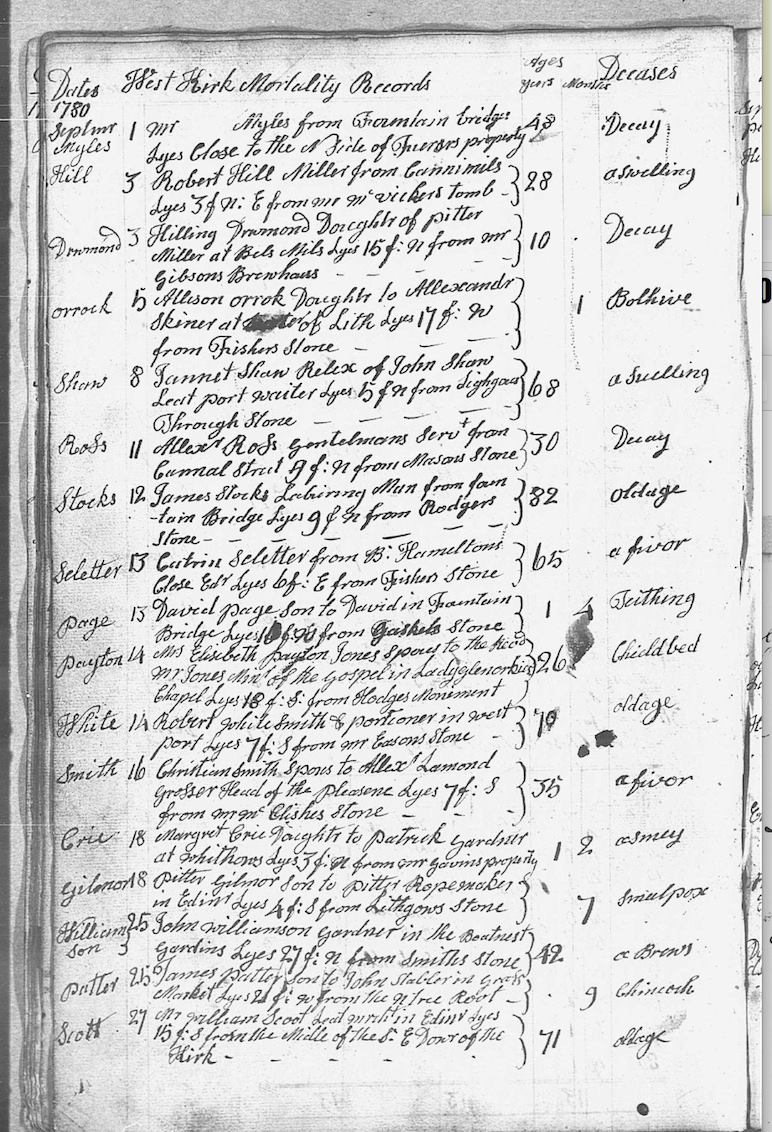 Ages
Dates West Kirk Mortality Records Years Months Deceases
1780
Septmr 1 Mr Myles from Fountain bridge 48 Decay
Myles Lyes Close to the N Side of property
Hill 3 Robert Hill Miller from Cannimils 28 a swelling
Lyes 3 f N: E from mr Mc Vickers tomb
Drumond 3 Hilling Drumond Daughtr of pitter 10 Decay
Miller at Bels Mils Lyes 15 f: N from mr
Gibsons Brewhaus
Orrock 5 Allison Orrok Daughtr to Allexandr 1 Bolhive
Skiner at of Lith Lyes 17 f: N
from Fishers Stone
Shaw 8 Jannet Shaw Relex of John Shaw 68 a Suelling
Leat port waiter Lyes 5 f N from Lighgows
Through Stone
Ross 11 Allexr Ross Gentelmans Servt from 30 Decay
Cannal Street 9 f: N from Masons Stone
Stocks 12 James Stocks Labiring Man from foun 82 oldage
-tain Bridge Lyes 9 f N from Rodgers
Stone
Seletter 13 Catrin Seletter from Br: Hameltons 65 a fivor
Close Edr Lyes 6 f: E from Fishers Stone
Page 13 David page Son to David in Fountain 1 4 Tuthing
Bridge Lyes from Gaskels Stone
Payton 14 Mrs Elisbeth payton Jones Spous to the 26 Chieldbed
Mr Jones Minr of the Gospel in Ladyglenorkies
Chapel Lyes 18 f: S: from Hodges Monement
White 14 Robert White Smith & portioner in west 70 oldage
port Lyes 7 f: S from mr Easons Stone
Smith 16 Christian Smith Spous to Allexr Lamond 35 a fivor
Grosser Head of the pleasene Lyes 7 f: S
from mr mc Clishes Stone
Cric 18 Margret Cric Daughtr to Patrick Gardner 1 2 asmey
at whithows Lyes 3 f: N from mr Gavins property
Gilmor 18 Pitter Gilmor Son to Pitter Ropemaker 7 Smalpox
in Edinr Lyes 4 f: S from Lithgows Stone
William 25 John williamson Gardner in the 42 a Brews
son Gardins Lyes 27 f: N from Smiths Stone
Patter 25 James patter Son to John Stabler in Grass 9 Chincoch
Market Lyes 21 f: N from the N tree Root
Scott 27 Mr william Scoot Leat writr in Edinr Lyes 71 oldage
15 f: S from the Midle of the S. E Dowr of the
Kirk